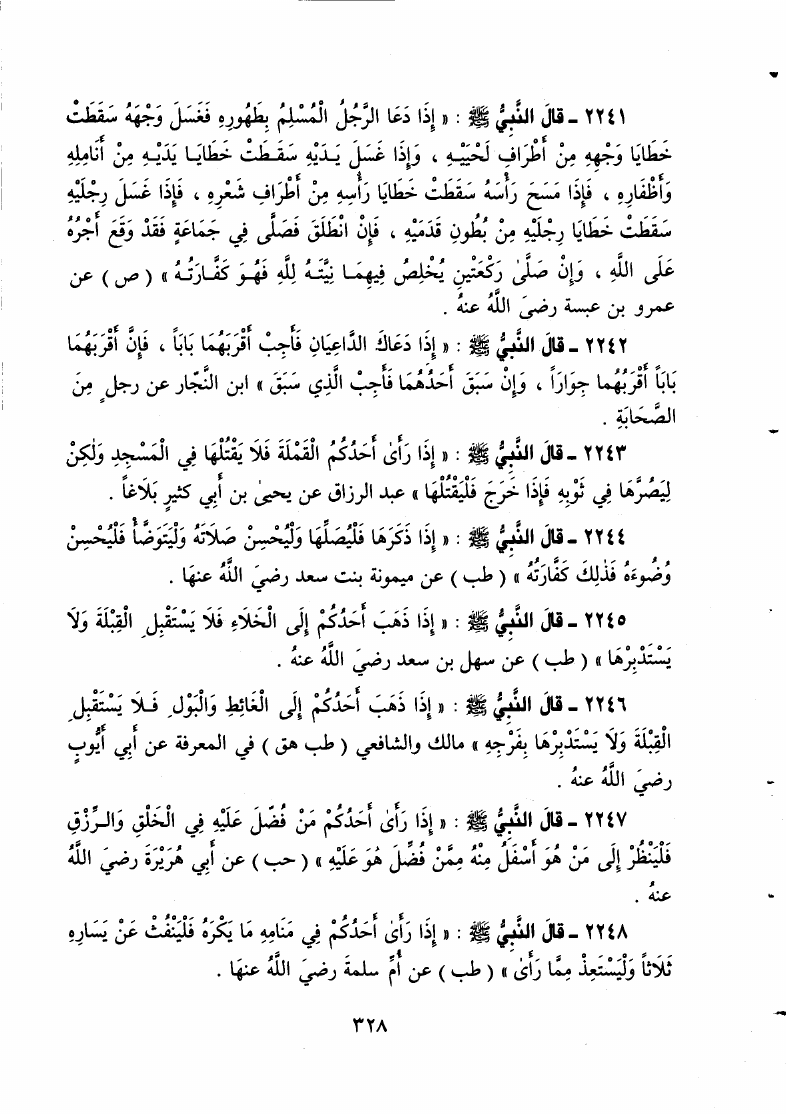 ٢٢٤١ ـ قالَ النَّبِيُّ ﷺ : « إِذَا دَعَا الرَّجُلُ الْمُسْلِمُ بِطَهُورِهِ فَغَسَلَ وَجْهَهُ سَقَطَتْ
خَطَايَا وَجْهِهِ مِنْ أَطْرَافِ لَحْيَيْهِ ، وَإِذَا غَسَلَ يَدَيْهِ سَقَطَتْ خَطَايَا يَدَيْهِ مِنْ أَنَامِلِهِ
وَأَظْفَارِهِ ، فَإِذَا مَسَحَ رَأْسَهُ سَقَطَتْ خَطَايَا رَأْسِهِ مِنْ أَطْرَافِ شَعْرِهِ ، فَإِذَا غَسَلَ رِجْلَيْهِ
سَقَطَتْ خَطَايَا رِجْلَيْهِ مِنْ بُطُونِ قَدَمَيْهِ ، فَإِنْ انْطَلَقَ فَصَلَّى فِي جَمَاعَةٍ فَقَدْ وَقَعَ أَجْرُهُ
عَلَى اللَّهِ ، وَإِنْ صَلَّىٰ رَكْعَتَيْنِ يُخْلِصُ فِيهِمَا نِيَّتَهُ لِلَّهِ فَهُوَ كَفَّارَتُهُ » ( ص ) عن
عمرو بن عبسة رضيَ اللَّهُ عنهُ .
٢٢٤٢ ـ قالَ النَّبِيُّ ﷺ : « إِذَا دَعَاكَ الدَّاعِيَانِ فَأَجِبْ أَقْرَبَهُمَا بَابَاً ، فَإِنَّ أَقْرَبَهُمَا
بَابَاً أَقْرَبُهُمَا جِوَارَاً ، وَإِنْ سَبَقَ أَحَدُهُمَا فَأَجِبْ الَّذِي سَبَقَ » ابن النَّجَّار عن رجلٍ مِنَ
الصَّحَابَةِ .
٢٢٤٣ ـ قالَ النَّبِيُّ ﷺ : « إِذَا رَأَىٰ أَحَدُكُمُ الْقَمْلَةَ فَلَا يَقْتُلْهَا فِي الْمَسْجِدِ وَلٰكِنْ
لِيَصُرَّهَا فِي ثَوْبِهِ فَإِذَا خَرَجَ فَلْيَقْتُلْهَا » عبد الرزاق عن يحيىٰ بن أَبي كثيرٍ بَلَاغاً .
٢٢٤٤ ـ قالَ النَّبِيُّ ﷺ : « إِذَا ذَكَرَهَا فَلْيُصَلِّهَا وَلْيُحْسِنْ صَلَاتَهُ وَلْيَتَوَضَّأْ فَلْيُحْسِنْ
وُضُوءَهُ فَذٰلِكَ كَفَّارَتُهُ » ( طب ) عن ميمونة بنت سعد رضيَ اللَّهُ عنهَا .
٢٢٤٥ ـ قالَ النَّبِيُّ ﷺ : « إِذَا ذَهَبَ أَحَدُكُمْ إِلَى الْخَلَاءِ فَلَا يَسْتَقْبِلِ الْقِبْلَةَ وَلَا
يَسْتَدْبِرْهَا » ( طب ) عن سهل بن سعد رضيَ اللَّهُ عنهُ .
٢٢٤٦ ـ قالَ النَّبِيُّ ﷺ : « إِذَا ذَهَبَ أَحَدُكُمْ إِلَى الْغَائِطِ وَالْبَوْلِ فَلَا يَسْتَقْبِلِ
الْقِبْلَةَ وَلَا يَسْتَدْبِرْهَا بِفَرْجِهِ » مالك والشافعي ( طب هق ) في المعرفة عن أَبي أَيُّوبٍ
رضيَ اللَّهُ عنهُ .
٢٢٤٧ ـ قالَ النَّبِيُّ ﷺ : « إِذَا رَأَىٰ أَحَدُكُمْ مَنْ فُضِّلَ عَلَيْهِ فِي الْخَلْقِ وَالرِّزْقِ
فَلْيَنْظُرْ إِلَى مَنْ هُوَ أَسْفَلُ مِنْهُ مِمَّنْ فُضِّلَ هُوَ عَلَيْهِ » ( حب ) عن أَبي هُرَيْرَةَ رضيَ اللَّهُ
عنهُ .
٢٢٤٨ ـ قالَ النَّبِيُّ ﷺ : « إِذَا رَأَىٰ أَحَدُكُمْ فِي مَنَامِهِ مَا يَكْرَهُ فَلْيَنْفُثْ عَنْ يَسَارِهِ
ثَلَاثَاً وَلْيَسْتَعِذْ مِمَّا رَأَىٰ » ( طب ) عن أُمِّ سلمةَ رضيَ اللَّهُ عنهَا .
٣٢٨